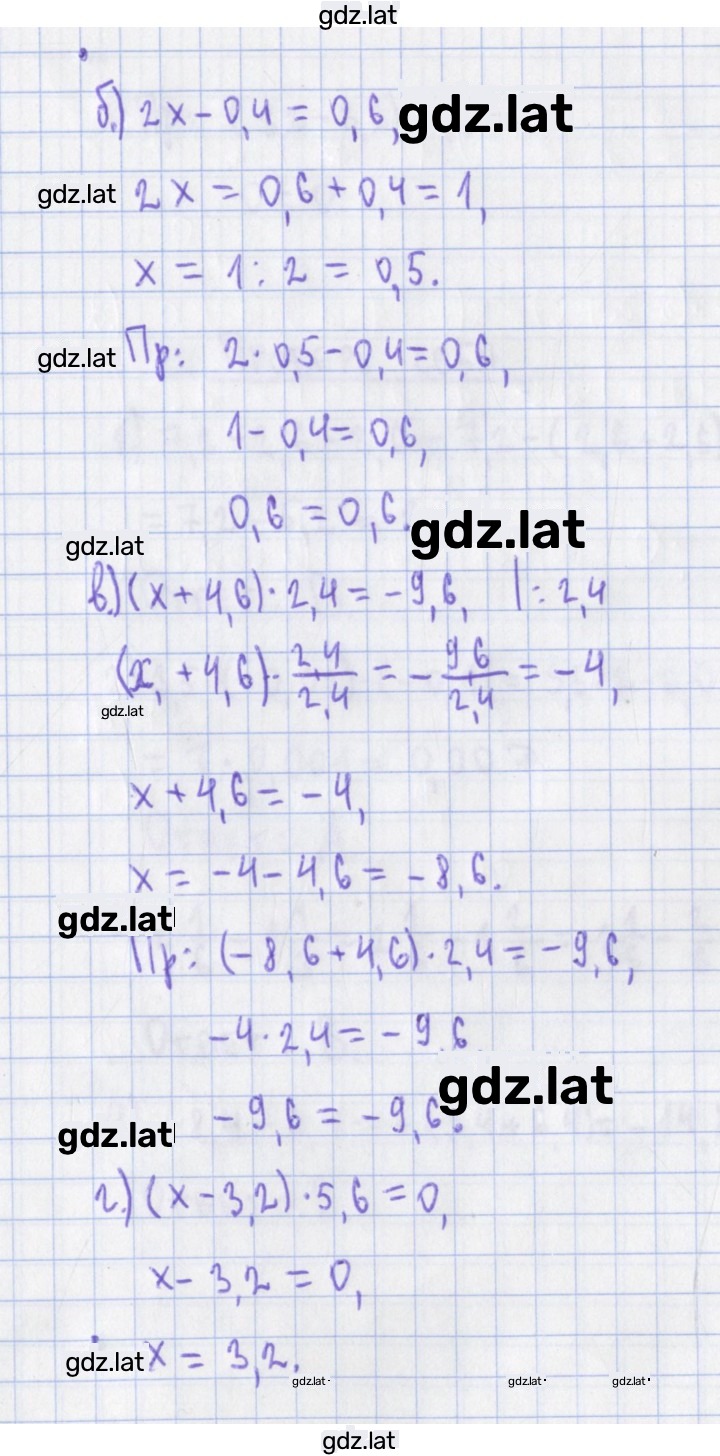 gdz.lat
б.) 2x - 0,4 = 0,6, gdz.lat
gdz.lat 2x = 0,6 + 0,4 = 1,
x = 1 : 2 = 0,5.
gdz.lat Пр: 2 · 0,5 - 0,4 = 0,6,
1 - 0,4 = 0,6,
0,6 = 0,6. gdz.lat
gdz.lat
в.) (x + 4,6) · 2,4 = -9,6, | : 2,4
(x, + 4,6) · 2,4/2,4 = - 9,6/2,4 = -4,
gdz.lat
x + 4,6 = -4,
x = -4 - 4,6 = -8,6.
gdz.lat
Пр: (-8,6 + 4,6) · 2,4 = -9,6,
-4 · 2,4 = -9,6
gdz.lat
gdz.lat -9,6 = -9,6.
г.) (x - 3,2) · 5,6 = 0,
x - 3,2 = 0,
gdz.lat x = 3,2.
gdz.lat gdz.lat gdz.lat
gdz.lat